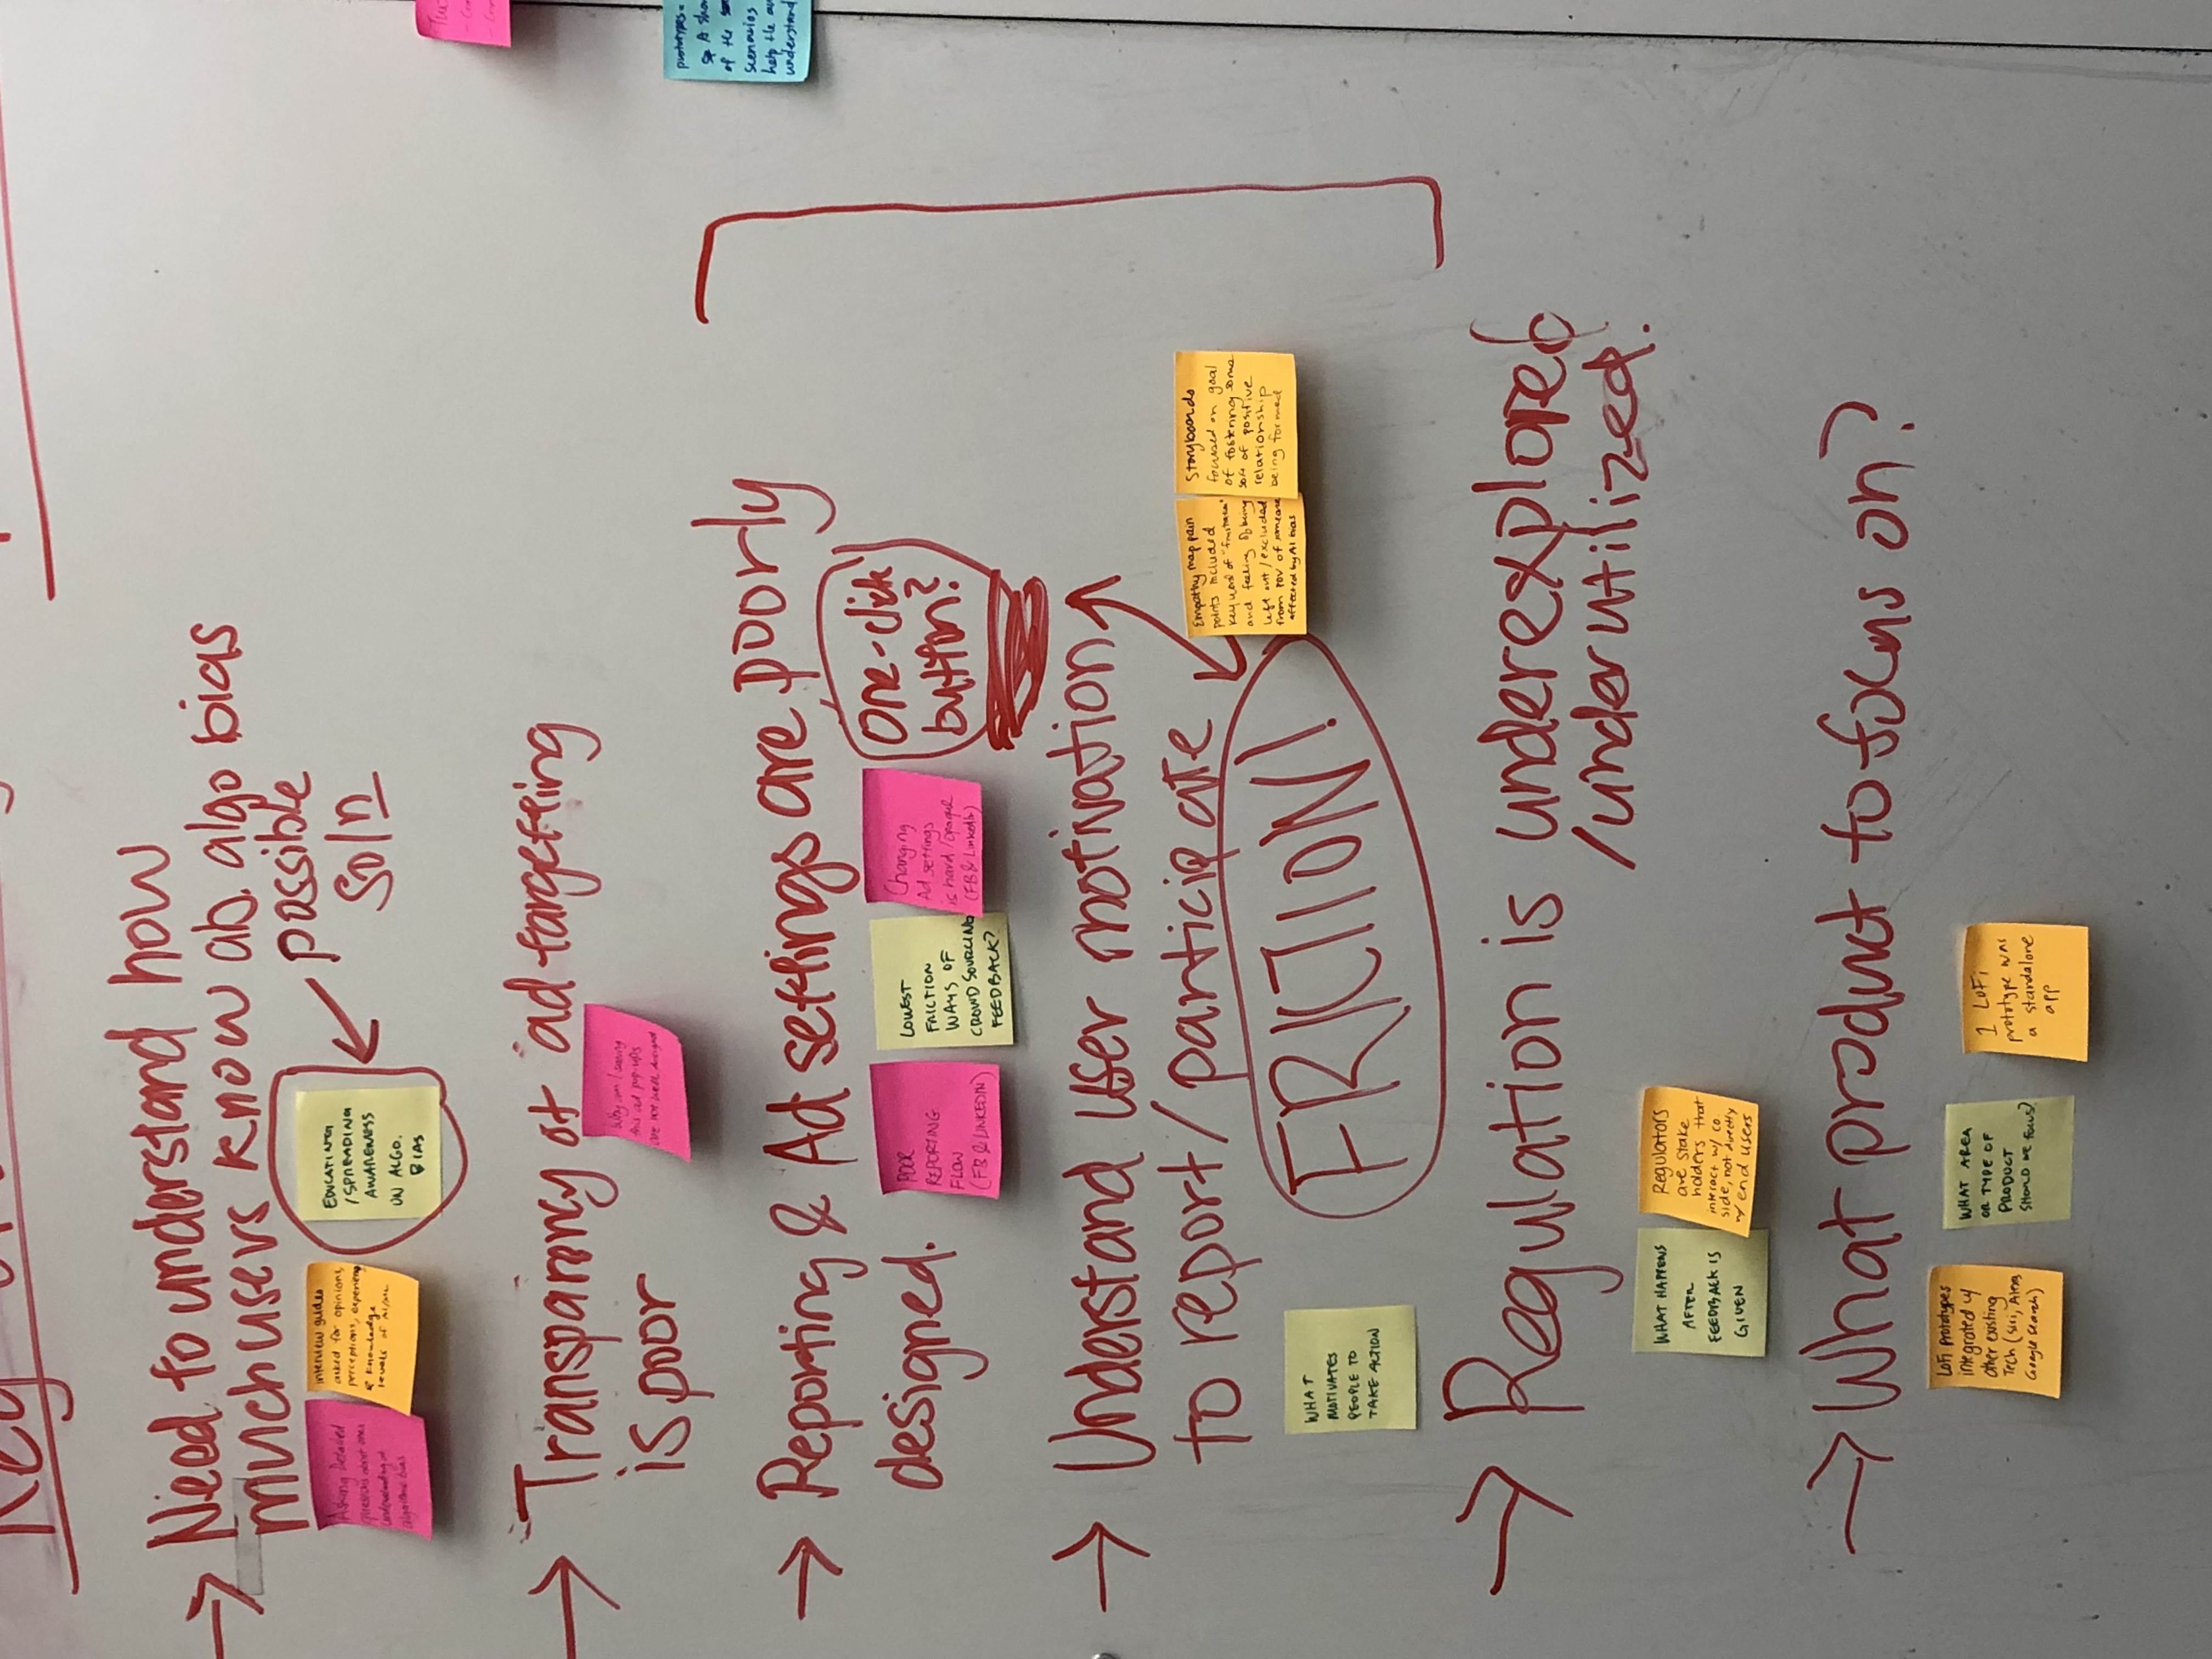 Key
→ Need to understand how
much users know ab. algo bias
Asking Detailed
questions about ones
understanding of
algorithmic bias
interview guides
asked for opinions,
perceptions, experience
& knowledge
levels of AI/ML
EDUCATING
/SPREADING
AWARENESS
ON ALGO.
BIAS
← possible
soln
→ Transparency of ad targetting
is poor
Why am I seeing
this ad pop-ups
are not well designed
→ Reporting & Ad settings are poorly
designed.
POOR
REPORTING
FLOW
(FB & LINKEDIN)
LOWEST
FRICTION
WAYS OF
CROWD SOURCING
FEEDBACK?
Changing
Ad settings
is hard/opaque
(FB & LinkedIn)
One-click
button?
→ Understand user motivation
to report/participate
WHAT
MOTIVATES
PEOPLE TO
TAKE ACTION
FRICTION!
Empathy map pain
points included
key word of "frustration"
and feeling of being
left out/excluded
from POV of someone
affected by AI bias
Storyboards
focused on goal
of fostering some
sort of positive
relationship
being formed
→ Regulation is underexplored
/underutilized!
WHAT HAPPENS
AFTER
FEEDBACK IS
GIVEN
Regulators
are stake
holders that
interact w/ co.
side, not directly
w/ end users
→ What product to focus on?
LoFi Prototypes
integrated w/
other existing
Tech (Siri, Alexa,
Google Search)
WHAT AREA
OR TYPE OF
PRODUCT
SHOULD WE FOCUS?
1 LoFi
prototype was
a standalone
app
prototypes =
of the
scenarios
help the
understand